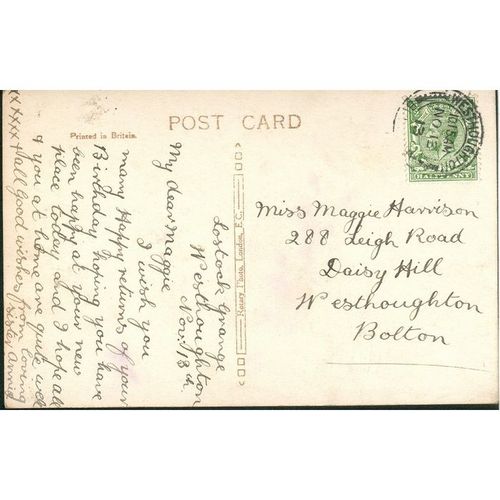 POST CARD
Printed in Britain.
Lostock Grange
Westhoughton
Nov. 13th.
My dear Maggie
I wish you
many Happy returns of your
Birthday, hoping you have
been happy at your new
place today and I hope all
& you at home are quite well
xxxxx + all Good wishes from loving
Sister Annie
Rotary Photo, London, E.C.
Miss Maggie Harrison
288 Leigh Road
Daisy Hill
Westhoughton
Bolton
WESTHOUGHTON
NO 13
HALFPENNY